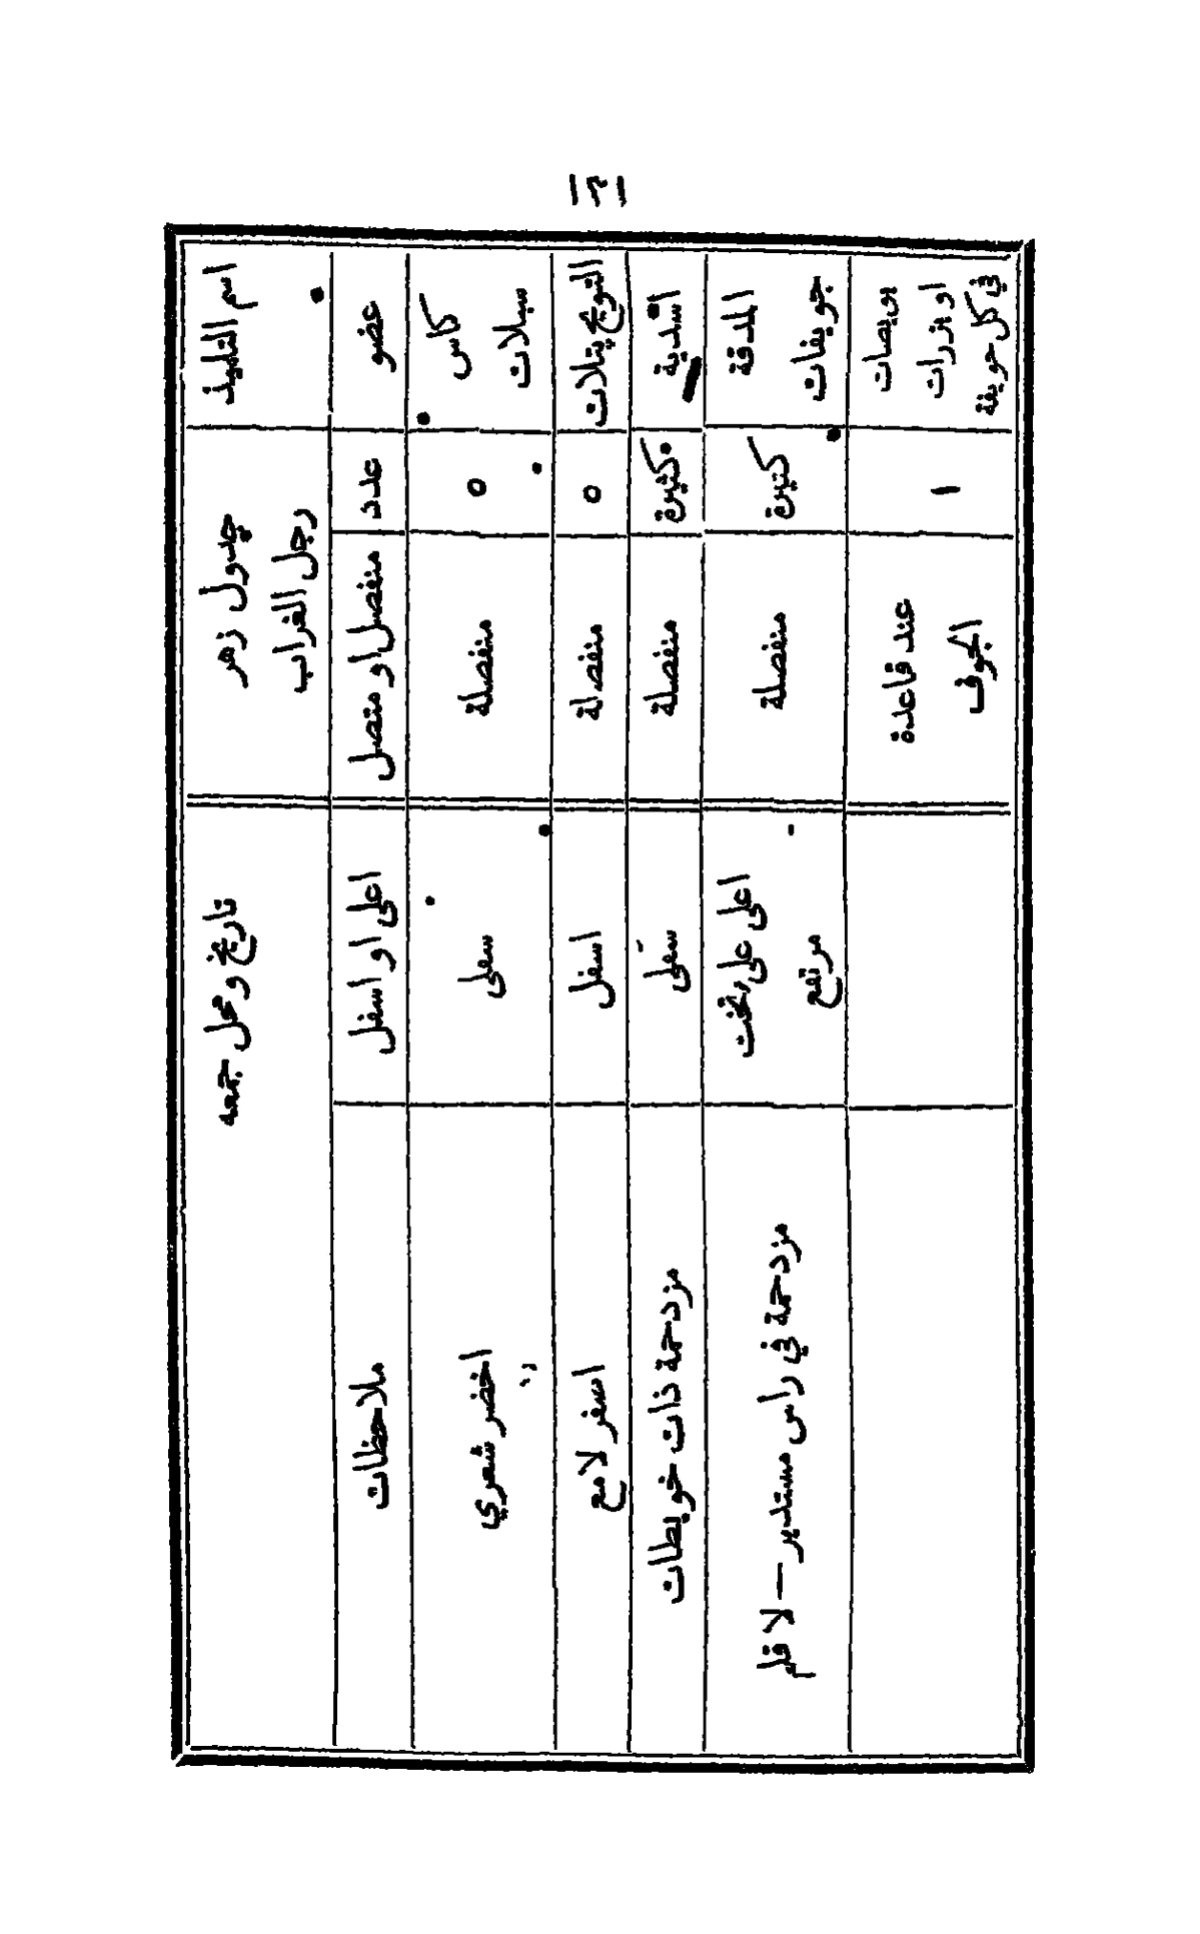 ١٣١
اسم التلميذ
جدول زهر
رجل الغراب
تاريخ ومحل جمعه
عضو
عدد
منفصل او متصل
اعلى او اسفل
ملاحظات
كاس
سبلات
٥
منفصلة
سفلى
اخضر شعري
التويج بتلات
٥
منفصلة
اسفل
اسفر لامع
اسدية
كثيرة
منفصلة
سفلى
مزدحمة ذات خويطات
المدقة
جويفات
كثيرة
منفصلة
اعلى على تخت
مرتفع
مزدحمة في راس مستدير – لا قلم
بويضات
او بزرات
في كل جويفة
١
عند قاعدة
الجوف